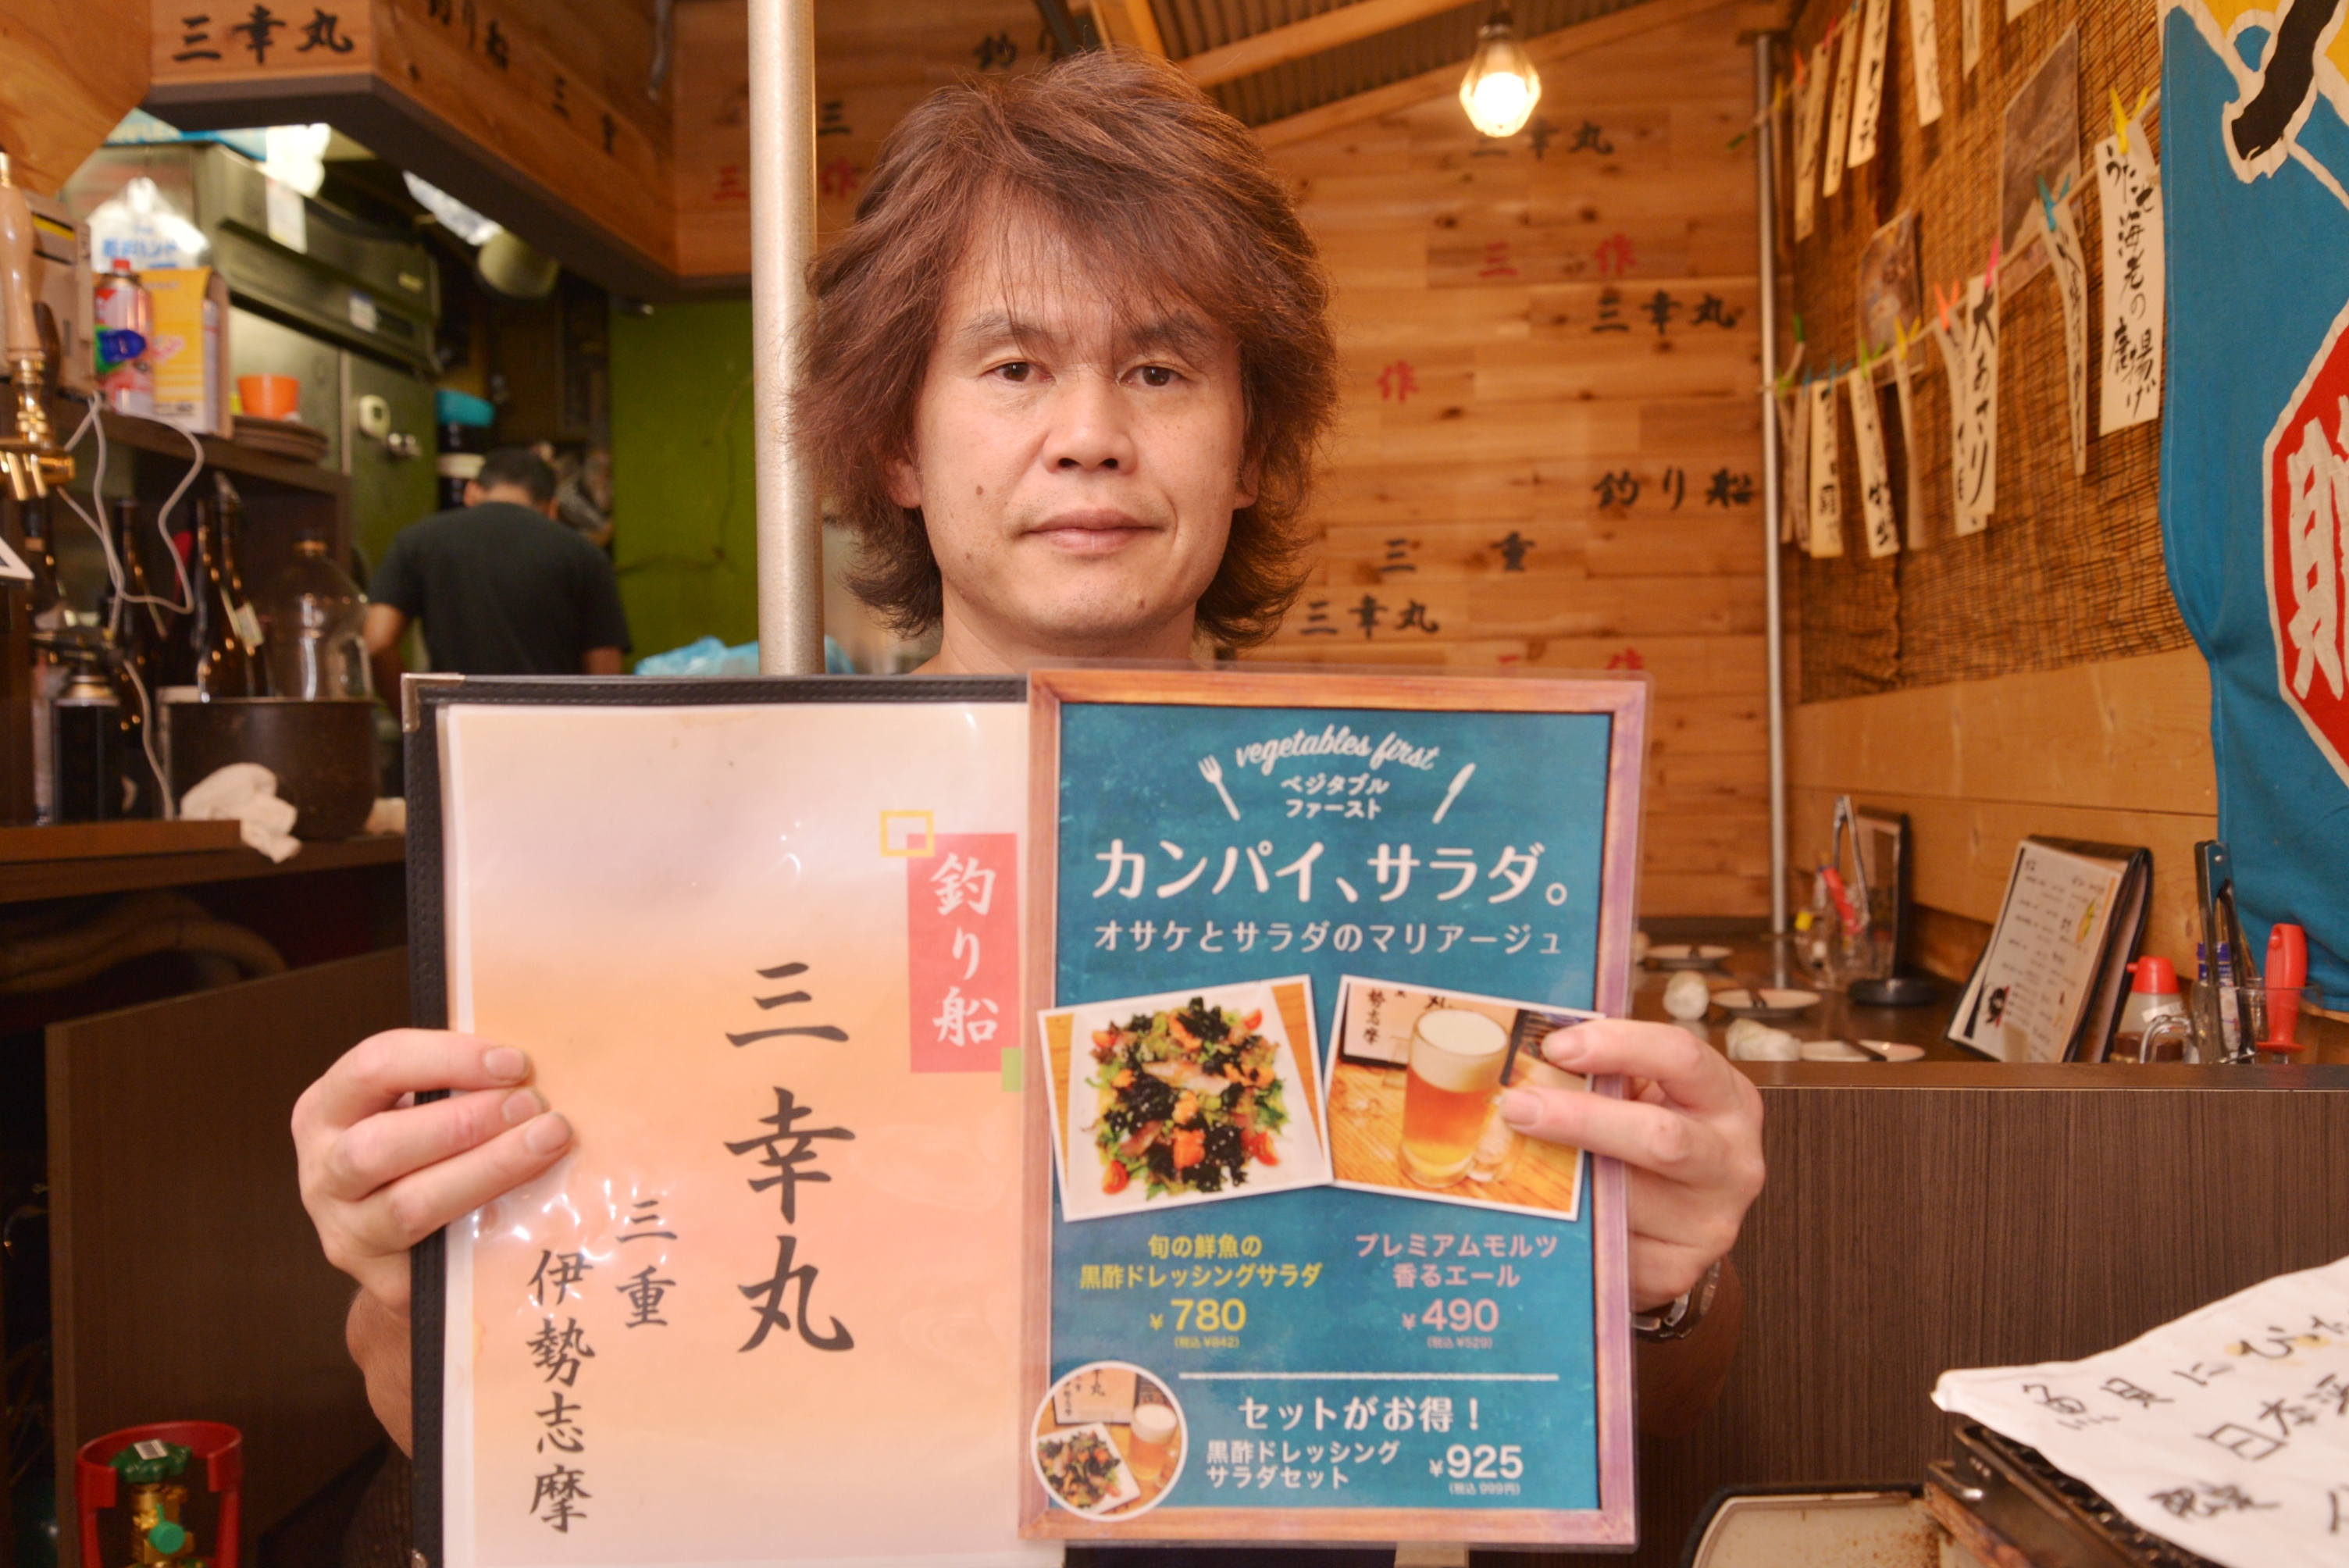 三幸丸
釣り船
三重
三幸丸
三 作
三幸丸
作
釣り船
三重
三幸丸
うたせ海老の唐揚げ
大あさり
釣り船
三幸丸
三重
伊勢志摩
vegetables first
ベジタブル
ファースト
カンパイ、サラダ。
オサケとサラダのマリアージュ
勢志摩
旬の鮮魚の
黒酢ドレッシングサラダ
¥780
(税込 ¥842)
プレミアムモルツ
香るエール
¥490
(税込 ¥529)
セットがお得！
黒酢ドレッシング
サラダセット
¥925
(税込 999円)
魚貝にぴ
日本酒